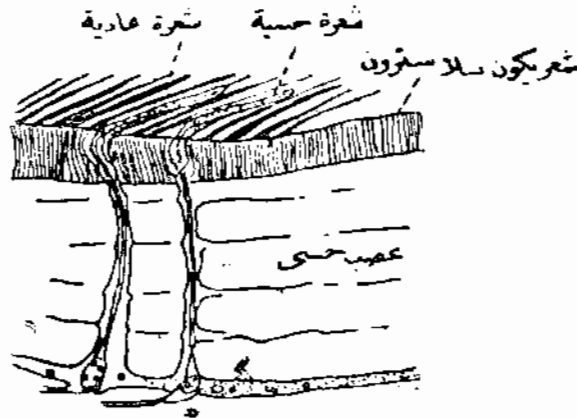 شعرة عادية
شعرة حسية
شعر يكون سلا سترون
عصب حسى